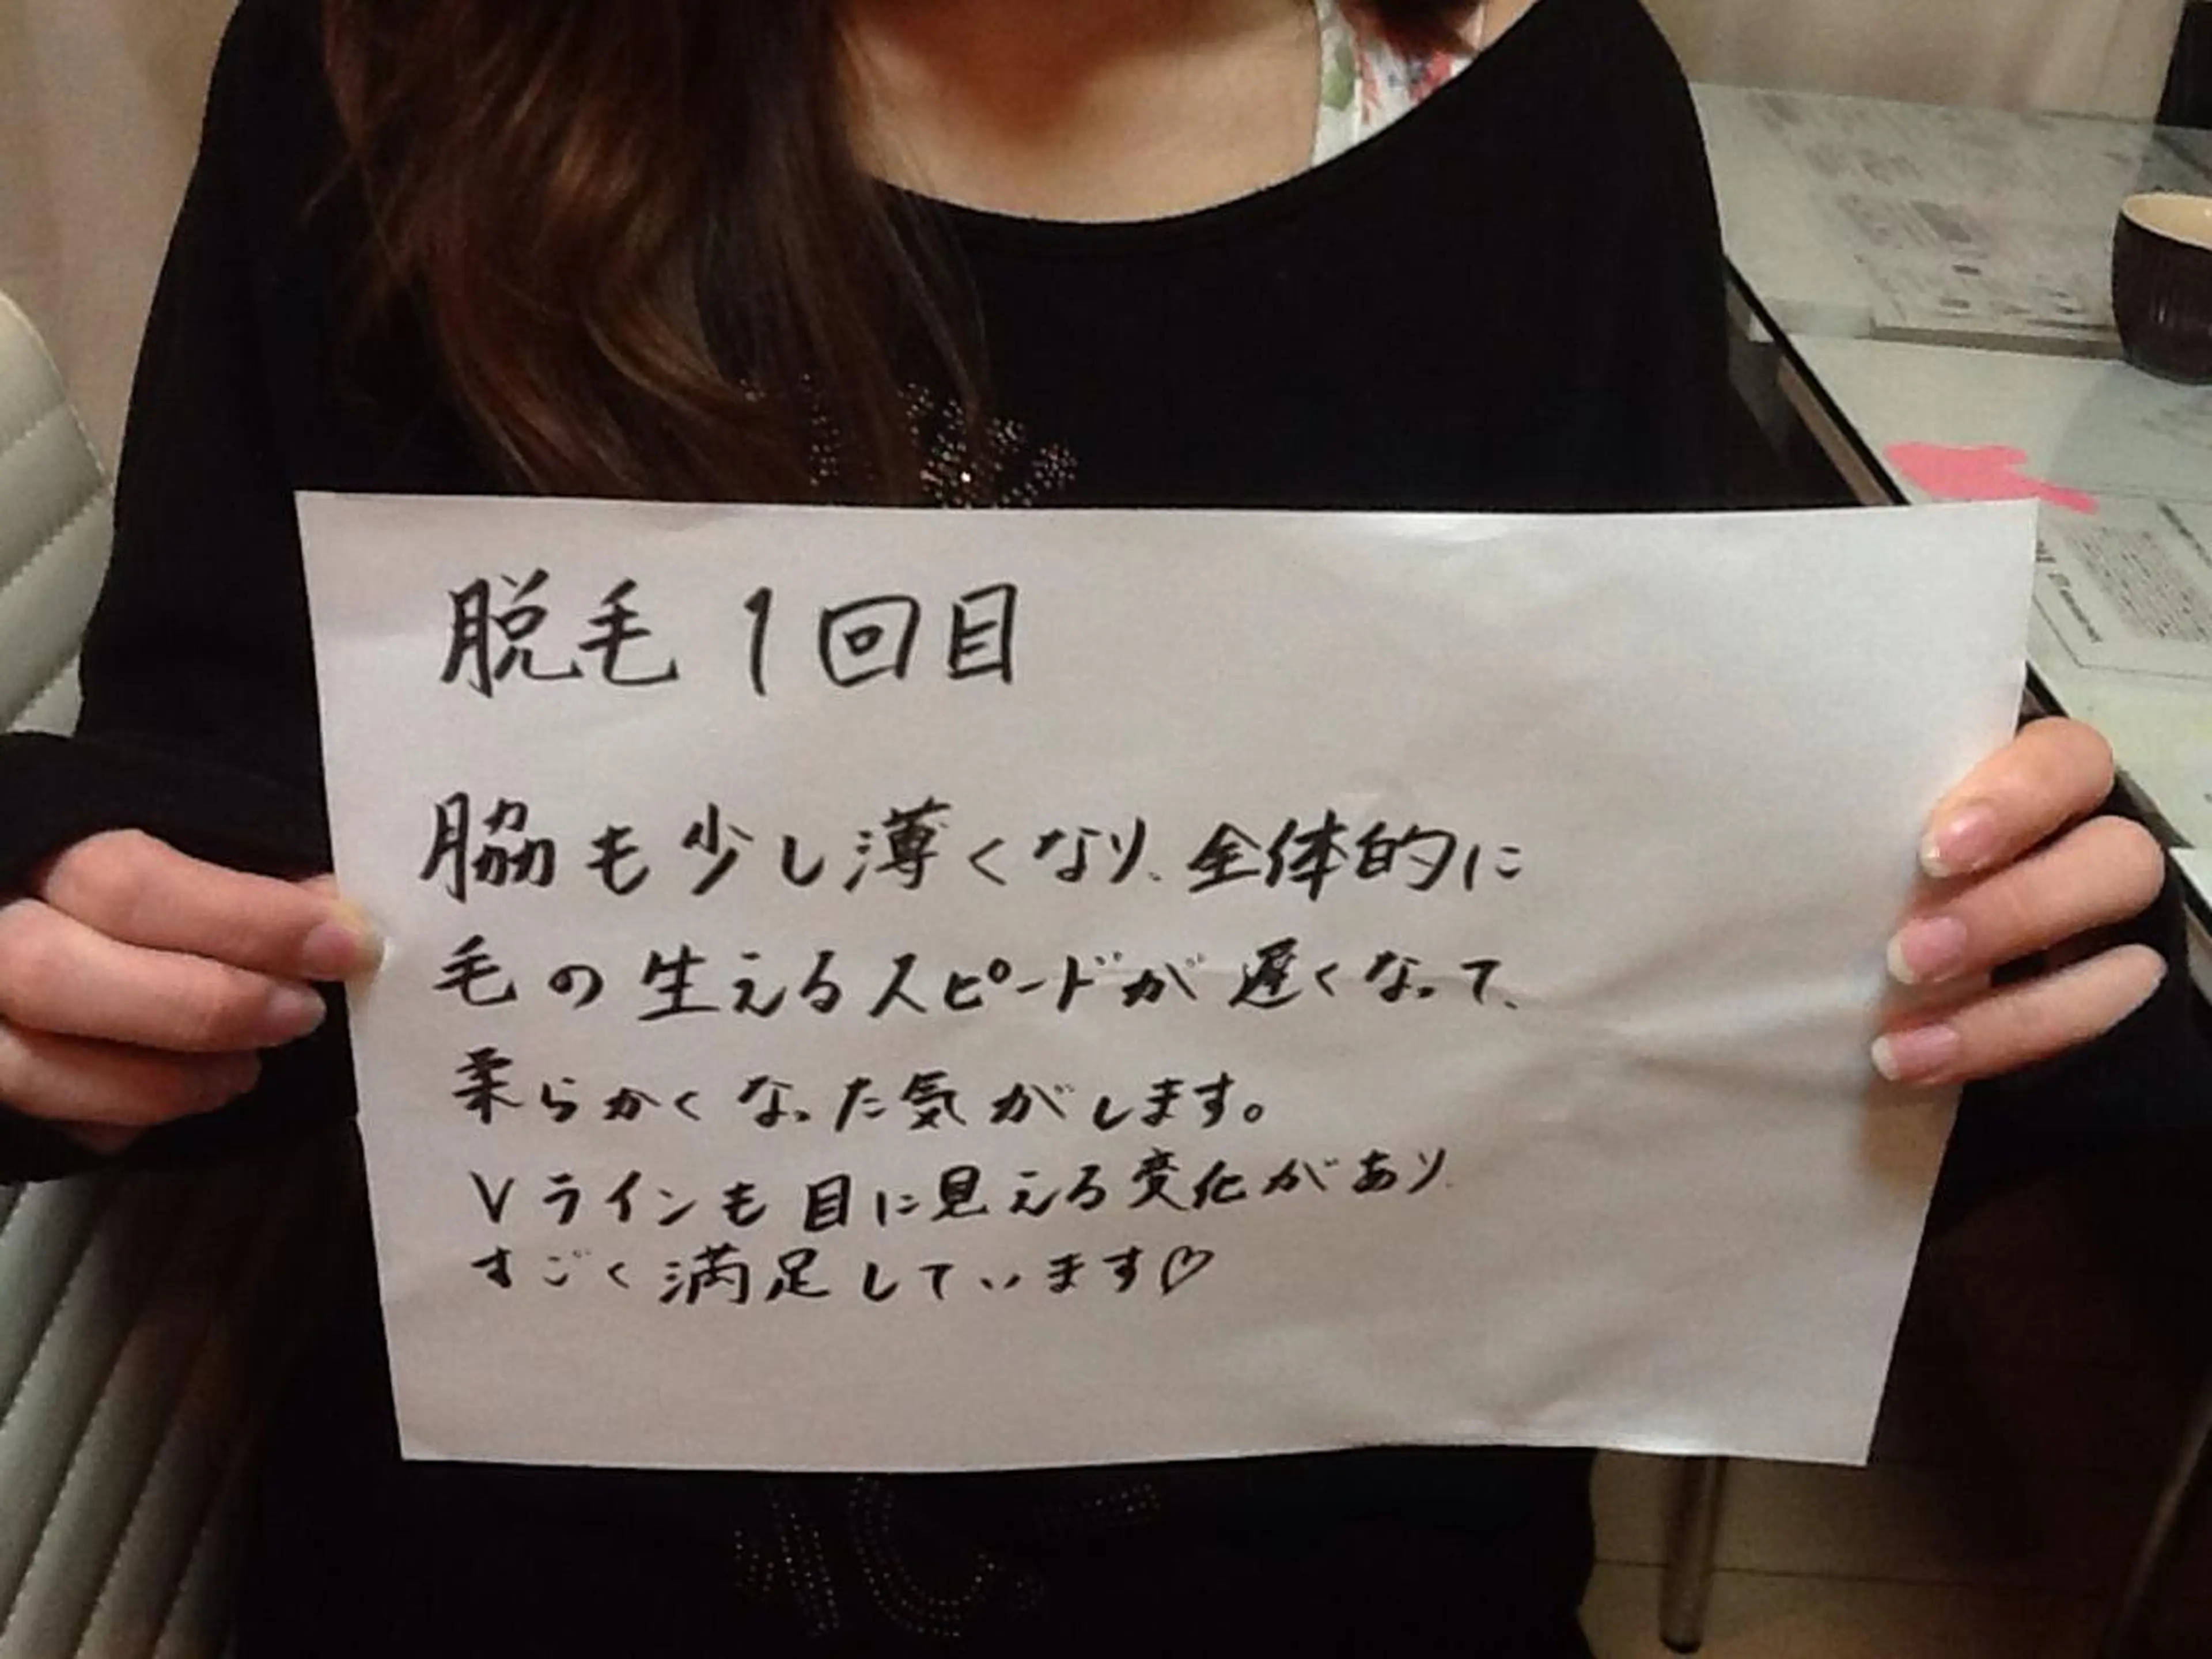 脱毛1回目
脇も少し薄くなり、全体的に
毛の生えるスピードが遅くなって、
柔らかくなった気がします。
Vラインも目に見える変化があり
すごく満足しています♡